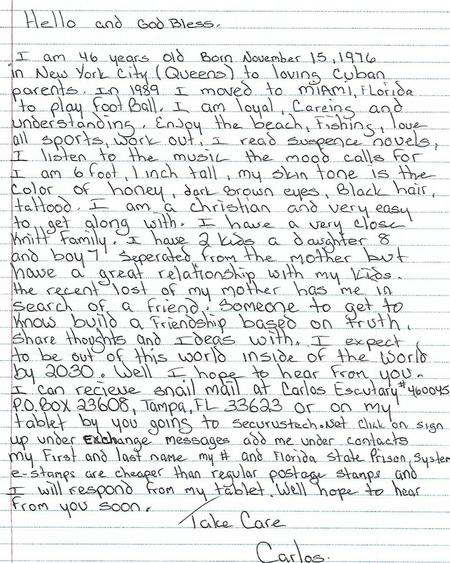 Hello and God Bless.
I am 46 years old Born November 15, 1976
in New York City (Queens) to loving Cuban
parents. In 1989 I moved to MIAMI, Florida
to play Football. I am loyal, Careing and
understanding. Enjoy the beach, Fishing, love
all sports, work out. I read suspence novels,
I listen to the music the mood calls for
I am 6 foot, 1 inch tall, my skin tone is the
color of honey, dark Brown eyes, Black hair,
tattood. I am a christian and very easy
to get along with. I have a very close
Knitt family. I have 2 kids a daughter 8
and boy 7. Seperated from the mother but
have a great relationship with my kids.
the recent lost of my mother has me in
search of a friend. Someone to get to
know build a Friendship based on truth.
Share thoughts and Ideas with. I expect
to be out of this world inside of the World
by 2030. Well I hope to hear from you.
I can recieve snail mail at Carlos Escutary #460045
P.O. BOX 23608, Tampa, FL 33623 or on my
tablet by you going to securustech.Net Click on sign
up under Exchange messages add me under contacts
my First and last name my # and Florida State Prison, System
e-stamps are cheaper than regular postage stamps and
I will respond from my tablet. Well hope to hear
From you soon.
Take Care
Carlos.